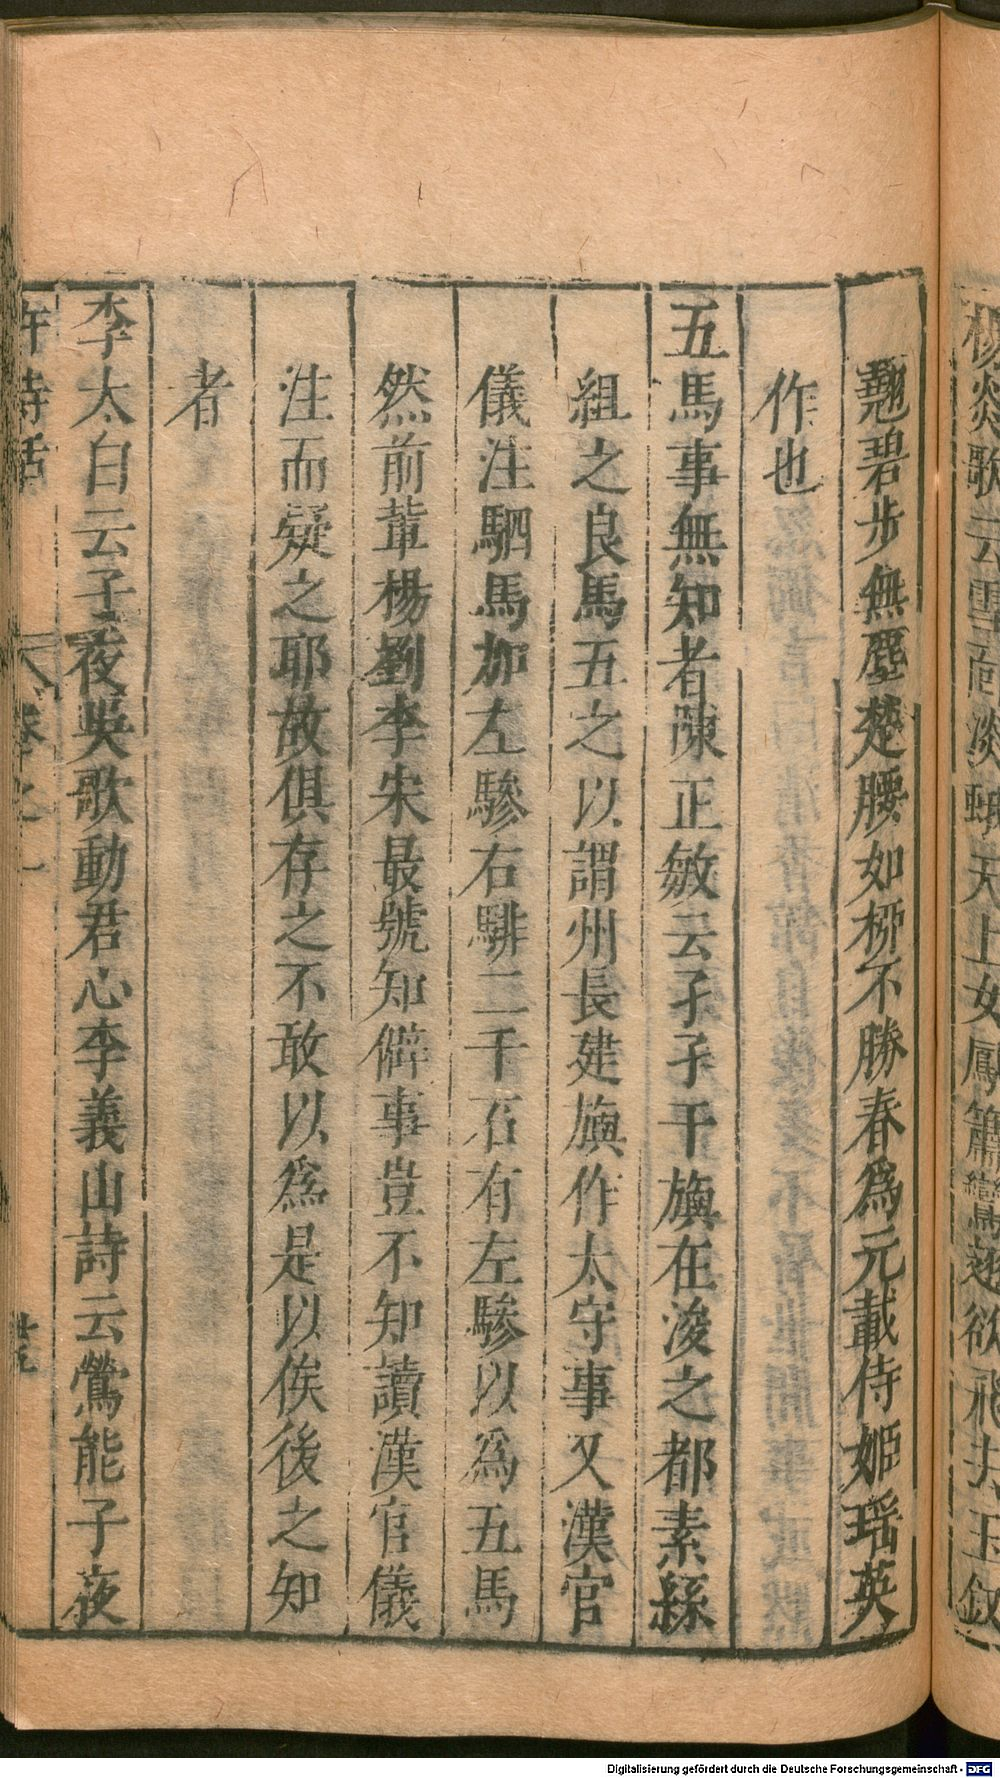 楊炎歌云雪面淡蛾天上女鳳簫鸞翅欲飛去玉釵
翹碧步無塵楚腰如栁不勝春為元載侍姬瑶英
作也
五馬事無知者陳正敏云孑孑干旟在浚之都素絲
組之良馬五之以謂州長建旟作太守事又漢官
儀注駟馬加左驂右騑二千石有左驂以為五馬
然前輩楊劉李宋最號知僻事豈不知讀漢官儀
注而疑之耶故俱存之不敢以為是以俟後之知
者
李太白云子夜吳歌動君心李義山詩云鶯能子夜
許詩話 卷之一 廿五
Digitalisierung gefördert durch die Deutsche Forschungsgemeinschaft - DFG